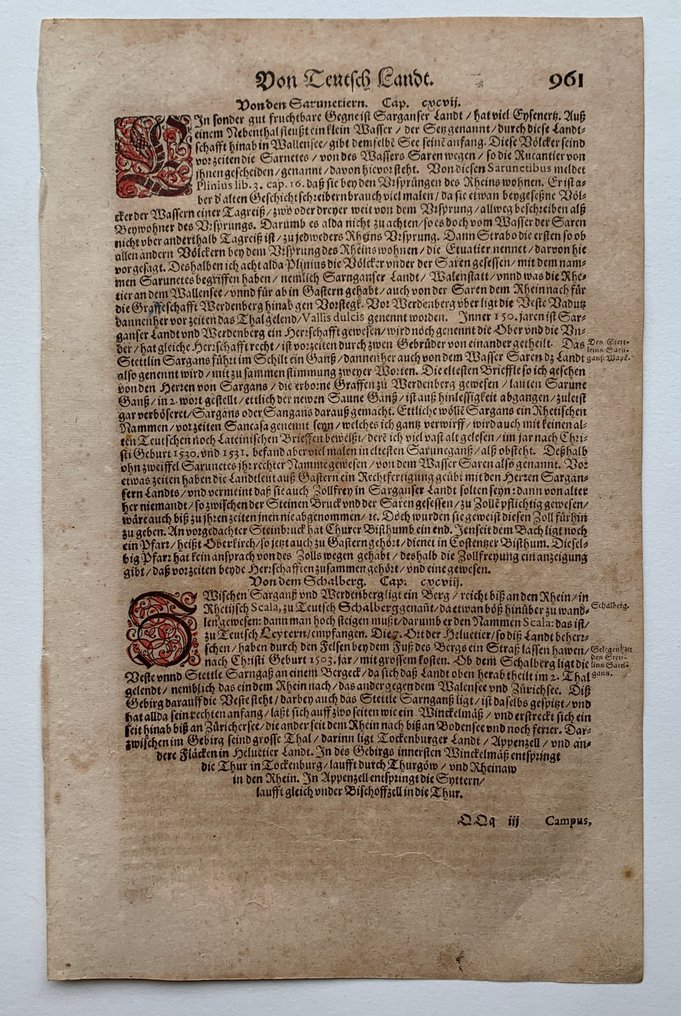 Von Teutsch Landt. 961
Von den Sarunetiern. Cap. cxcvij.
EIn sonder gut fruchtbare Gegne ist Sarganser Landt / hat viel Eysenertz. Auß
einem Nebenthal fleußt ein klein Wasser / der Setz genannt / durch diese Landt-
schafft hinab in Wallensee / gibt demselbē See seinē anfang. Diese Völcker seind
vor zeiten die Sarnetes / von des Wassers Saren wegen / so die Rucantier von
jhnen gescheiden / genannt / davon hievor steht. Von diesen Sarunctibus meldet
Plinius lib. 3. cap. 16. daß sie bey den Vrsprüngen des Rheins wohnen. Er ist a-
ber d'alten Geschichtschreibern brauch viel malen / da sie etwan beygeseßne Völ-
cker der Wassern einer Tagreiß / zwo oder dreyer weit von dem Vrsprung / allweg beschreiben alß
Beywohner des Vrsprungs. Darumb es alda nicht zu achten / so es doch vom Wasser der Saren
nicht vber anderthalb Tagreiß ist / zu jedweders Rheins Vrsprung. Dann Strabo die ersten so ob
allen andern Völckern bey dem Vrsprung des Rheins wohnen / die Etuatier nennet / darvon hie
vor gesagt. Deshalben ich acht alda Plinius die Völcker vnder der Saren gesessen / mit dem nam-
men Sarunetes begriffen haben / nemlich Sarnganser Landt / Walenstatt / vnnd was die Rhe-
tier an dem Wallensee / vnnd für ab in Gastern gehabt / auch von der Saren dem Rhein nach für
die Graffeschafft Werdenberg hinab gen Vorstegk. Vor Werdenberg vber ligt die Veste Vadutz
dannenher vor zeiten das Thal gelend / Vallis dulcis genennt worden. Inner 150. jaren ist Sar-
ganser Landt vnd Werdenberg ein Herrschafft gewesen / wird noch genennt die Ober vnd die Vn-
der / hat gleiche Herrschafft recht / ist vor zeiten durch zwen Gebrüder von einander getheilt. Das
Den Stett-
leins Sarn-
ganß Wapē.
Stettlin Sargans führt im Schilt ein Ganß / dannenher auch von dem Wasser Saren dz Landt
also genennt wird / mit zusammen stimmung zweyer Worten. Die eltesten Brieffe so ich gesehen
von den Herren von Sargans / die erborne Graffen zu Werdenberg gewesen / lauten Sarune
Ganß / in 2. wort gestellt / ettlich der newen Saune Ganß / ist auß hinlessigkeit abgangen / zuletst
gar verböseret / Sargans oder Sangans darauß gemacht. Ettliche wölle Sargans ein Rhetischen
Nammen / vor zeiten Sancasa genennt seyn / welches ich gantz verwirff / wird auch mit keinen al-
ten Teutschen noch Lateinischen Brieffen beweißt / derē ich viel vast alt gelesen / im jar nach Chri-
sti Geburt 1530. vnd 1531. befand aber viel malen in eltesten Saruneganß / alß obsteht. Deßhalb
ohn zweiffel Sarunetes jhr rechter Namme gewesen / von dem Wasser Saren also genannt. Vor
etwas zeiten haben die Landtleut auß Gastern ein Rechtfertigung geübt mit den Herren Sargan-
sern Landts / vnd vermeint daß sie auch Zollfrey in Sarganser Landt solten seyn: dann von alter
her niemandt / so zwischen der Steinen Bruck vnd der Saren gesessen / zu Zolle pflichtig gewesen /
wäre auch biß zu jhren zeiten jnen nie abgenommen / ꝛc. Doch wurden sie geweist diesen Zoll fürhin
zu geben. An vorgedachter Steinbruck hat Churer Bisthumb ein end. Jenseit dem Bach ligt noch
ein Pfarr / heißt Oberkirch / so jetzt auch zu Gastern gehört / dienet in Costentzer Bisthum. Diesel-
big Pfarr hat kein ansprach von des Zolls wegen gehabt / deshalb die Zollfreyung ein anzeigung
gibt / daß vor zeiten beyde Herrschafften zusammen gehört / vnd eine gewesen.
Von dem Schalberg. Cap. cxcviij.
ZWischen Sarganß vnd Werdenberg ligt ein Berg / reicht biß an den Rhein / in
Rhetijsch Scala, zu Teutsch Schalberg genañt / da etwan böß hinüber zu wand-
Schalberg.
len gewesen: dann man hoch steigen mußt / darumb er den Nammen Scala: das ist /
zu Teutsch Leytern / empfangen. Die 7. Ort der Heluetier / so diß Landt beherr-
schen / haben durch den Felsen bey dem Fuß des Bergs ein Straß lassen hawen /
Gelegenheit
den Stett-
lins Sarn-
gans.
nach Christi Geburt 1503. Jar / mit grossem kosten. Ob dem Schalberg ligt die
Veste vnnd Stettle Sarngaß an einem Bergeck / da sich daß Landt oben herab theilt im 2. Thal
gelendt / nemblich das ein dem Rhein nach / das ander gegen dem Walensee vnd Zürichsee. Diß
Gebirg darauff die Veste steht / darbey auch das Stettle Sarnganß ligt / ist daselbs gespitzt / vnd
hat allda sein rechten anfang / laßt sich auff zwo seiten wie ein Winckelmäß / vnd erstreckt sich ein
seit hinab biß an Zürichersee / die ander seit dem Rhein nach biß an Bodensee vnd noch ferrer. Dar-
zwischen im Gebirg seind grosse Thal / darinn ligt Tockenburger Landt / Appenzell / vnd an-
dere Fläcken in Heluetier Landt. In des Gebirgs innersten Winckelmäß entspringt
die Thur in Tockenburg / laufft durch Thurgöw / vnd Rheinaw
in den Rhein. In Appenzell entspringt die Syttern /
laufft gleich vnder Bischoffzell in die Thur.
QQq iij Campus,